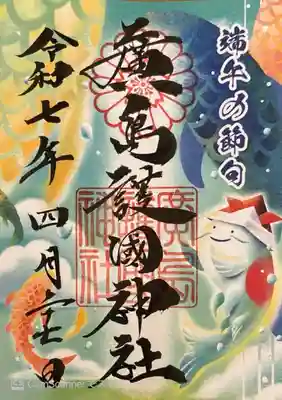 端午の節句
廣島護國神社
廣島
護國
神社
令和七年 四月二十七日
CamScanner